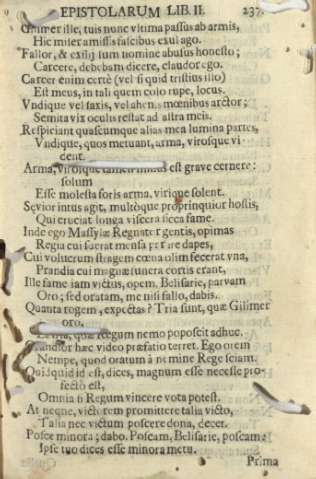 EPISTOLARUM LIB. II. 237
Gilimer ille, tuis nunc vltima passus ab armis,
Hic miser amissis fascibus exul ago.
Fallor, & exilij sum nomine abusus honesto;
Carcere, debebam dicere, claudor ego.
Carcer enim certè (vel si quid tristius illo)
Est meus, in tali quem colo rupe, locus.
Vndique vel saxis, vel ahenis mœnibus arctor;
Semita vix oculis restat ad astra meis.
Respiciant quascumque alias mea lumina partes,
Vndique, quos metuant, arma, virosque vi
dent.
Arma, virosque tamen est grave cernere:
solum
Esse molesta foris arma, virique solent.
Sęvior intus agit, multòque propinquior hostis,
Qui cruciat longa viscera sicca fame.
Inde ego Massylæ Regnator gentis, opimas
Regia cui fuerat mensa dapes,
Cui volucrum stragem cœna olim fecerat vna,
Prandia cui magnæ funera cortis erant,
Ille fame iam victus, opem, Belisarie, parvam
Oro; sed oratam, me nisi fallo, dabis.
Quanta rogem, expectas? Tria sunt, quæ Gilimer
oro.
quæ Regum nemo poposcit adhuc.
hæc video præfatio terret. Ego
Nempe, quod oratum à nemine Rege sciam.
Quidquid id est, dices, magnum esse necesse pro-
fectò est,
Omnia si Regum vincere vota potest.
At neque, victorem promittere talia victo,
Talia nec victum poscere dona, decet.
Posce minora; dabo. Poscam, Belisarie, poscam:
Ipse tuo dices esse minora metu.
Prima